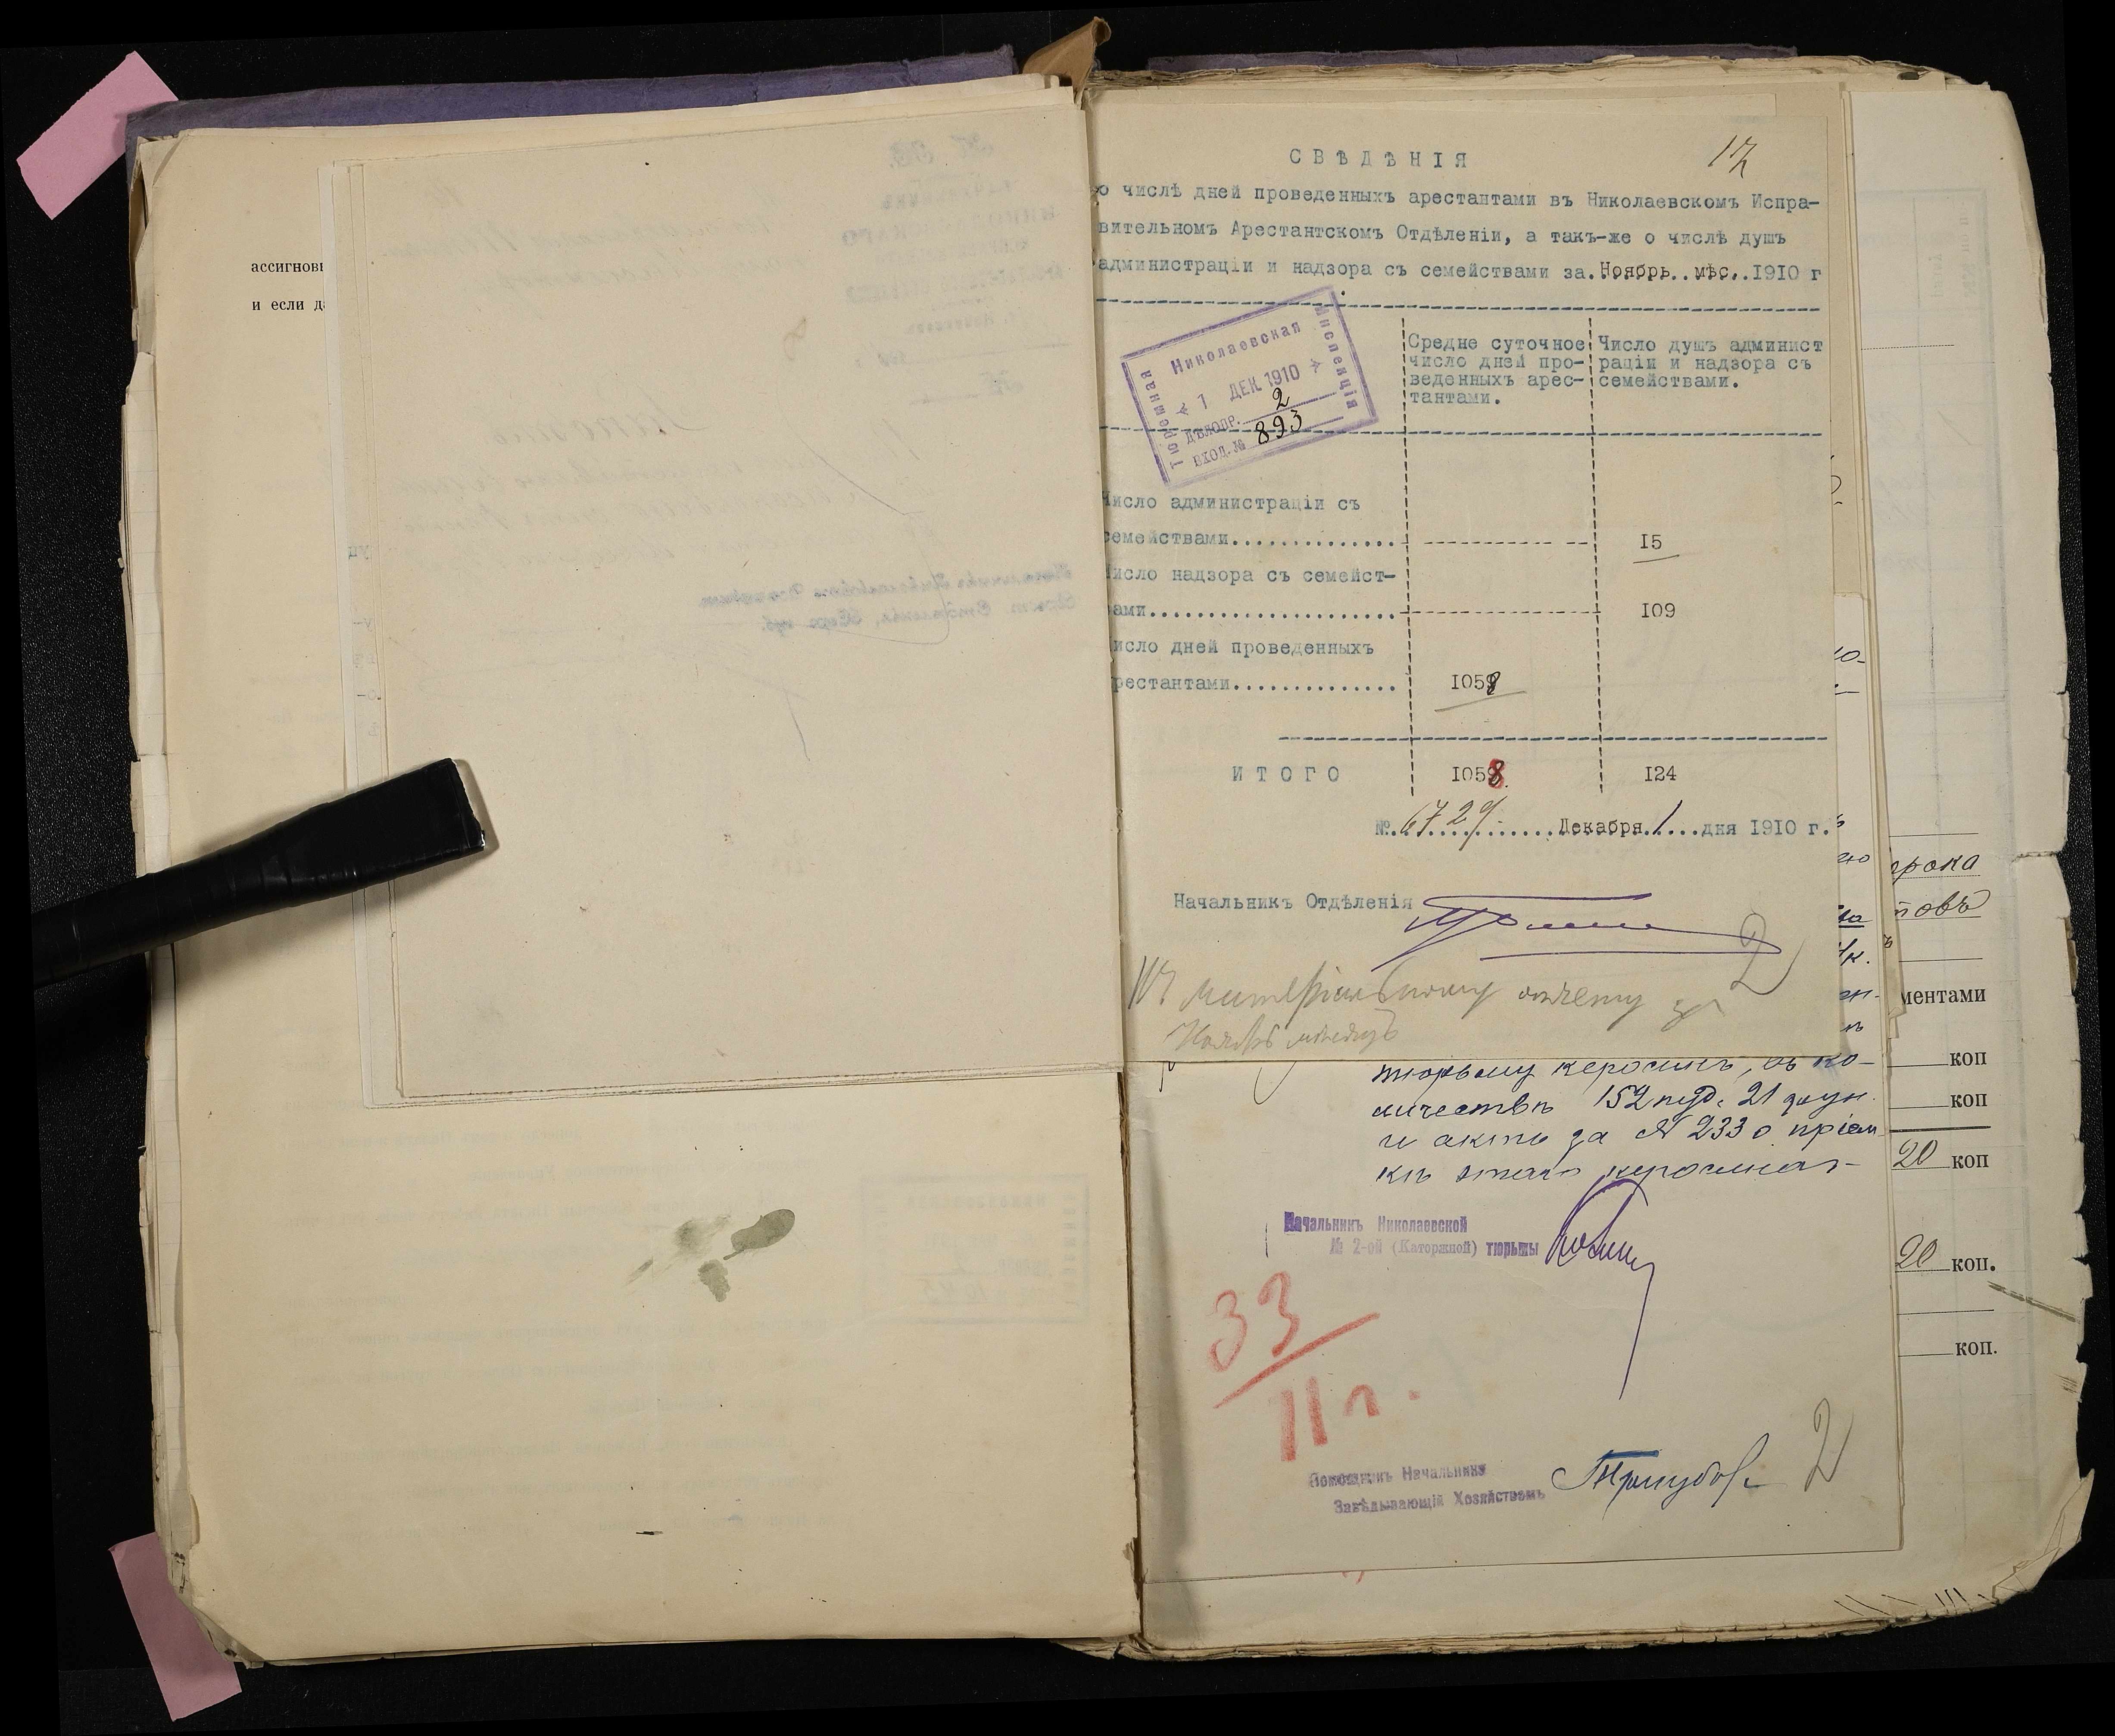 ассигнов
и если д
17
СВѢДѢНІЯ
о числѣ дней проведенныхъ арестантами въ Николаевскомъ Испра-
вительномъ Арестантскомъ Отдѣленіи, а такъ-же о числѣ душъ
администраціи и надзора съ семействами за.Ноябрь..мѣс..1910 г
Николаевская
Тюремная
Инспекція
1 ДЕК. 1910
ДѢЛОПР. 2
ВХОД.№ 893
Средне суточное
число дней про-
веденныхъ арес-
тантами.
Число душъ админист
раціи и надзора съ
семействами.
Число администраціи съ
семействами............... 15
число надзора съ семейст-
ами...................... 109
исло дней проведенныхъ
рестантами............... 1058
ИТОГО 1058. 124
№..6729..........Декабря.1...дня 1910 г.
Начальникъ Отдѣленія
2
Къ матеріальному отчету за
Ноябрь мѣсяцъ
тюрьму керосинъ, въ ко-
личествѣ 152 пуд. 21 фун.
и актъ за № 233 о пріем-
кѣ этого керосина
Начальникъ Николаевской
№ 2-ой (Каторжной) тюрьмы
33
11 г.
Помощникъ Начальника
Завѣдывающій Хозяйствомъ
2
рока
товъ
ментами
коп
коп
20 коп
20 коп.
коп.